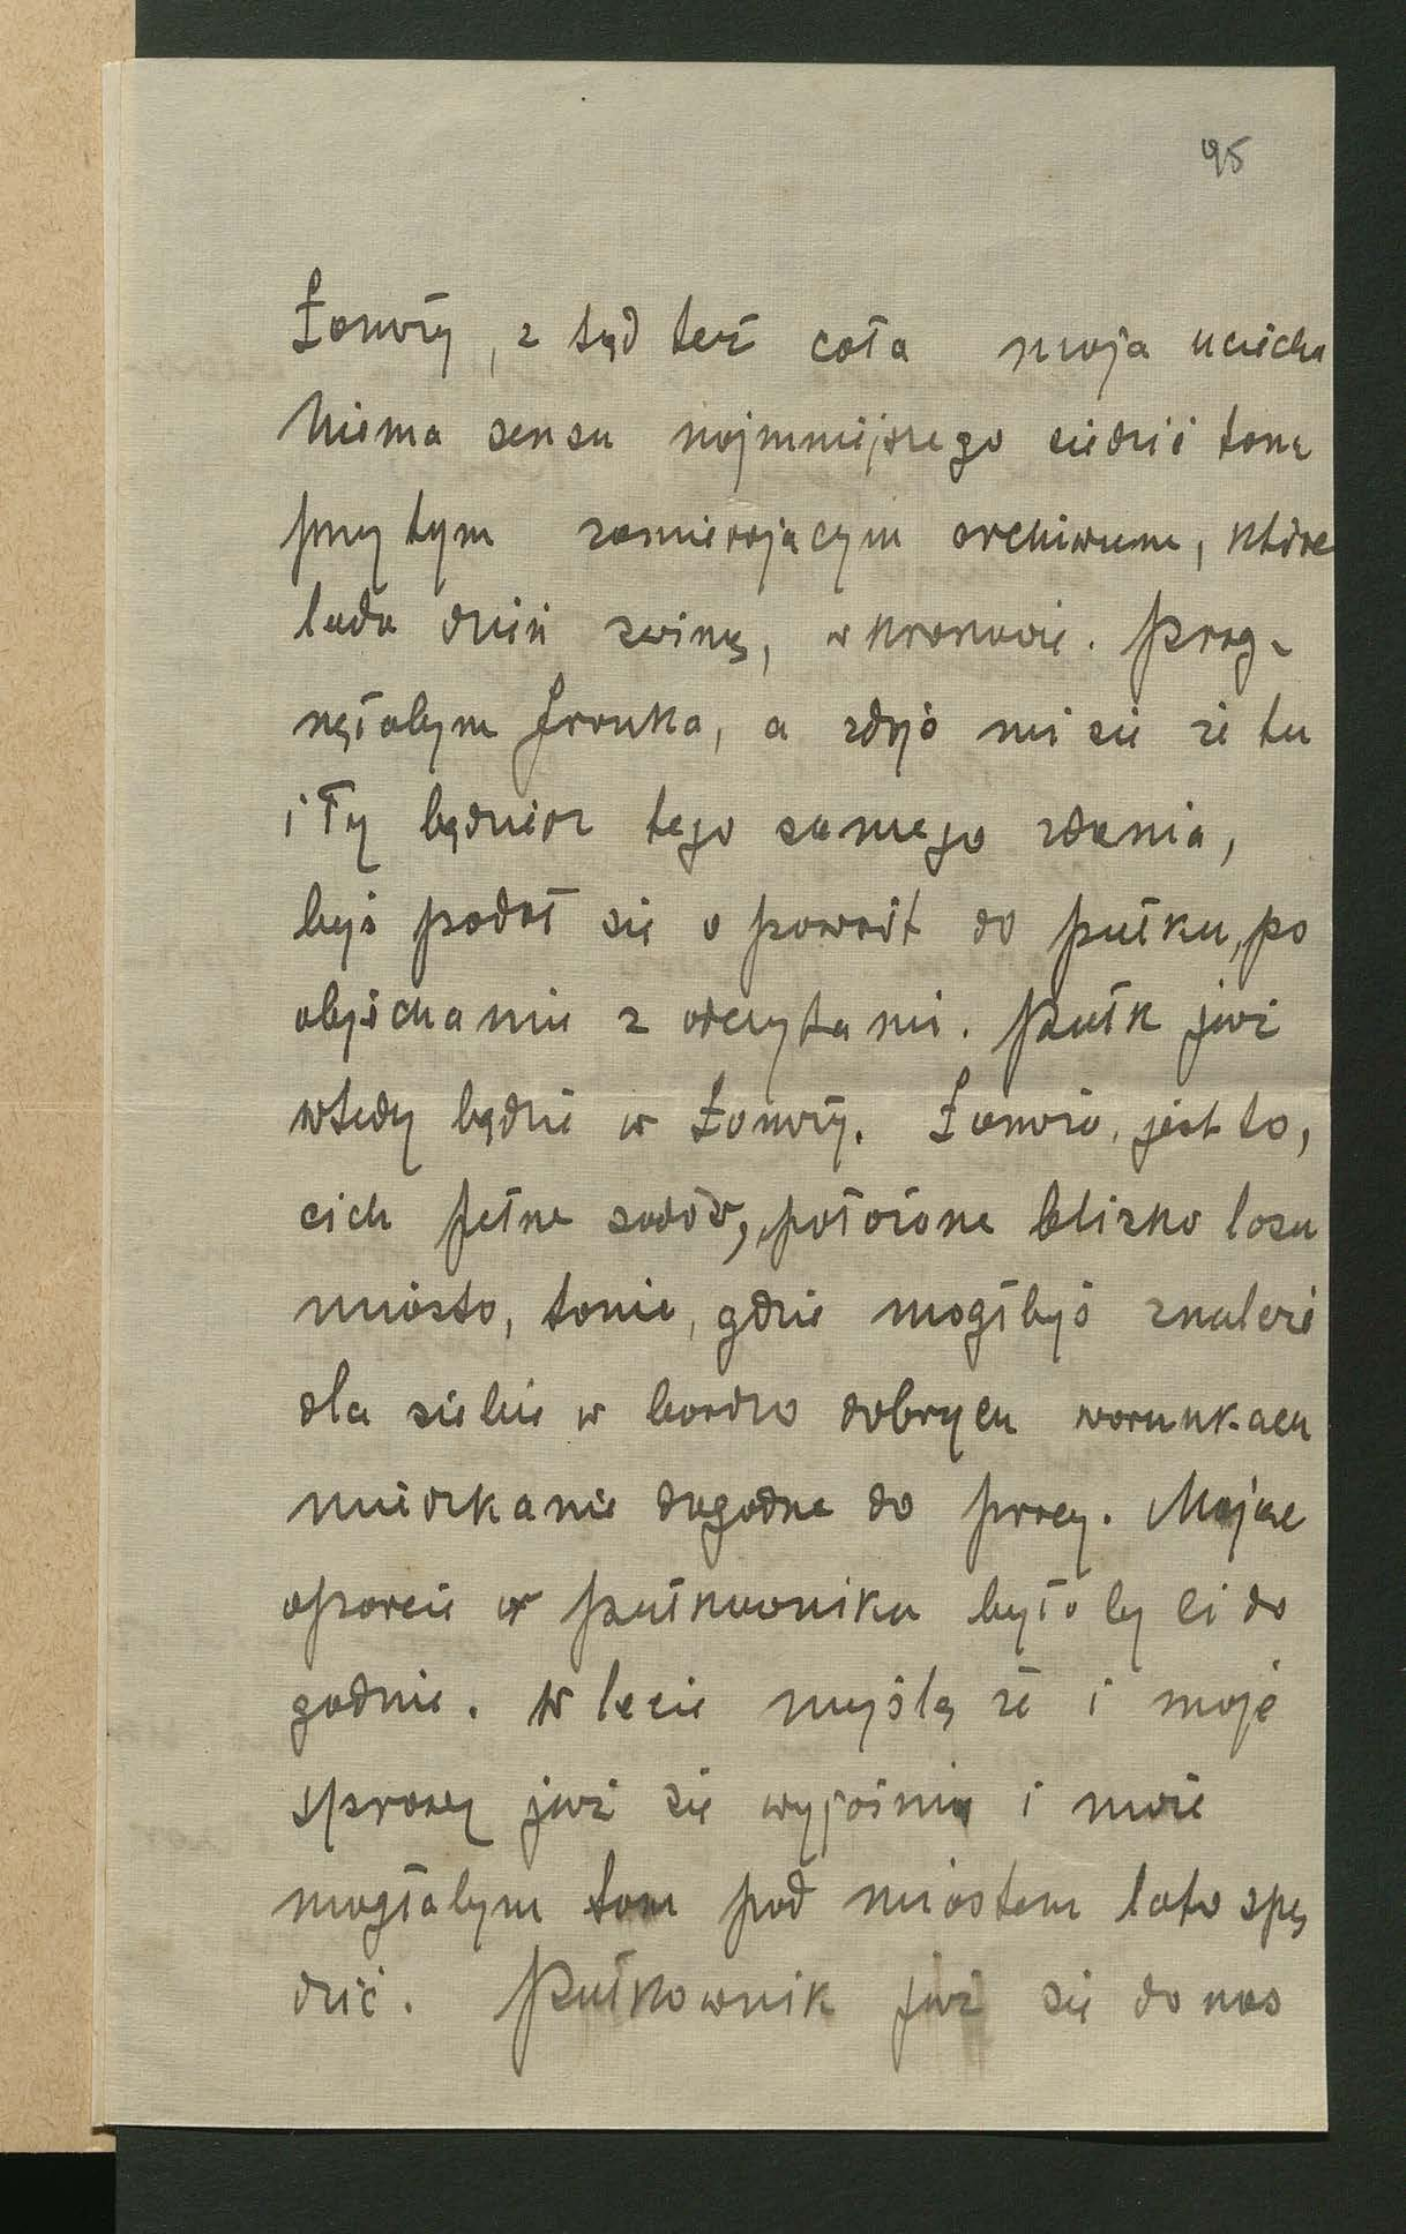 95
Łomży, z tąd też cała moja uciecha
Niema sensu najmniejszego siedzić
przy tym zamierającym archiwum, które
lada dzień zwiną, w Krakowie. Prag-
nęłabym Franka, a zdaje mi się że tu
i Ty będziesz tego samego zdania,
byś podał się o powrót do pułku, po
objechaniu z odczytami. Pułk już
wtedy będzie w Łomży. Łomża, jest to,
cich pełne sadów, położone blizko lasu
miasto, tanie, gdzie mógłbyś znaleść
dla siebie w bardzo dobrych warunkach
mieszkanie dogodne do pracy. Mając
oparcie w pułkowniku byłoby ci do
godnie. W lecie myślę że i moje
sprawy już się wyjaśnią i może
mogłabym tam pod miastem lato spę
dzić. Pułkownik już się do nas